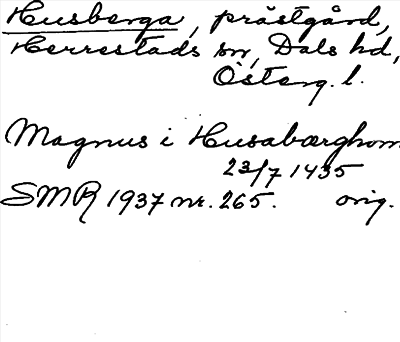 Husberga, prästgård,
Herrestads sn, Dals hd,
Österg. l.
Magnus i Husabærghom
23/7 1435
SMR 1937 nr. 265. orig.